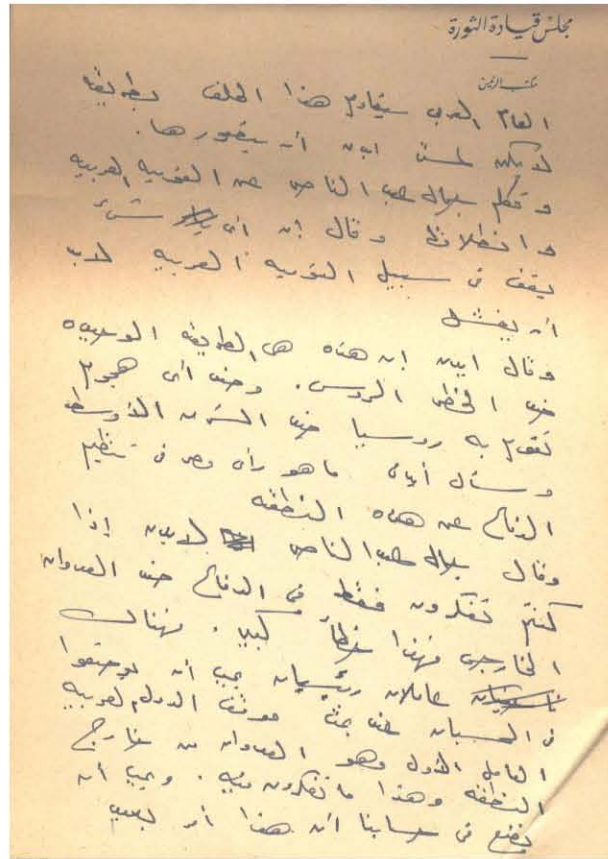 مجلس قيادة الثورة
مكتب الرئيس
العالم العربى سيقاوم هذا الحلف بطريقة
لا يمكن لمستر ايدن أن يتصورها.
وتكلم جمال عبد الناصر عن القومية العربية
وانطلاقها وقال إن أى شىء
يقف فى سبيل القومية العربية لابد
أن يفشل
وقال ايدن ان هذه هى الطريقة الوحيدة
ضد الخطر الروسى. وضد أى هجوم
تقوم به روسيا ضد الشرق الأوسط
وسأل أيدن ما هو رأى مصر فى تنظيم
الدفاع عن هذه المنطقة
وقال جمال عبد الناصر لايدن إذا
كنتم تفكرون فقط فى الدفاع ضد العدوان
الخارجى فهذا خطأ كبير. فهناك
عاملان رئيسيان يجب أن يوضعوا
فى الحسبان عند بحث موقف الدول العربية
العامل الأول وهو العدوان من خارج
المنطقة وهذا ما تفكرون فيه. ويجب أن
نضع فى حسابنا أن هذا أمر بعيد